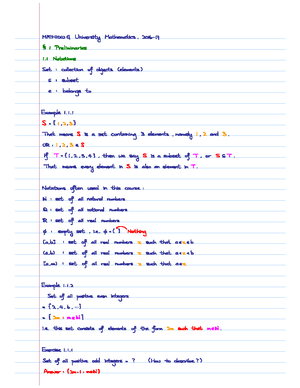 MATH1010G University Mathematics, 2016-17
§ 1 Preliminaries
1.1 Notations
Set : collection of objects (elements)
⊆ : subset
∈ : belongs to
Example 1.1.1
S = {1,2,3}
That means S is a set containing 3 elements, namely 1, 2 and 3.
OR : 1, 2, 3 ∈ S
If T = {1,2,3,4}, then we say S is a subset of T, or S ⊆ T.
That means every element in S is also an element in T.
Notations often used in this course :
ℕ : set of all natural numbers
ℚ : set of all rational numbers
ℝ : set of all real numbers
φ : empty set, i.e. φ = { } Nothing
[a,b] : set of all real numbers x such that a≤x≤b
(a,b) : set of all real numbers x such that a<x<b
[a,∞) : set of all real numbers x such that a≤x
Example 1.1.2
Set of all positive even integers
= {2,4,6,...}
= {2m : m∈ℕ}
i.e. this set consists of elements of the form 2m such that m∈ℕ.
Exercise 1.1.1
Set of all positive odd integers = ? (How to describe?)
Answer : {2m-1 : m∈ℕ}